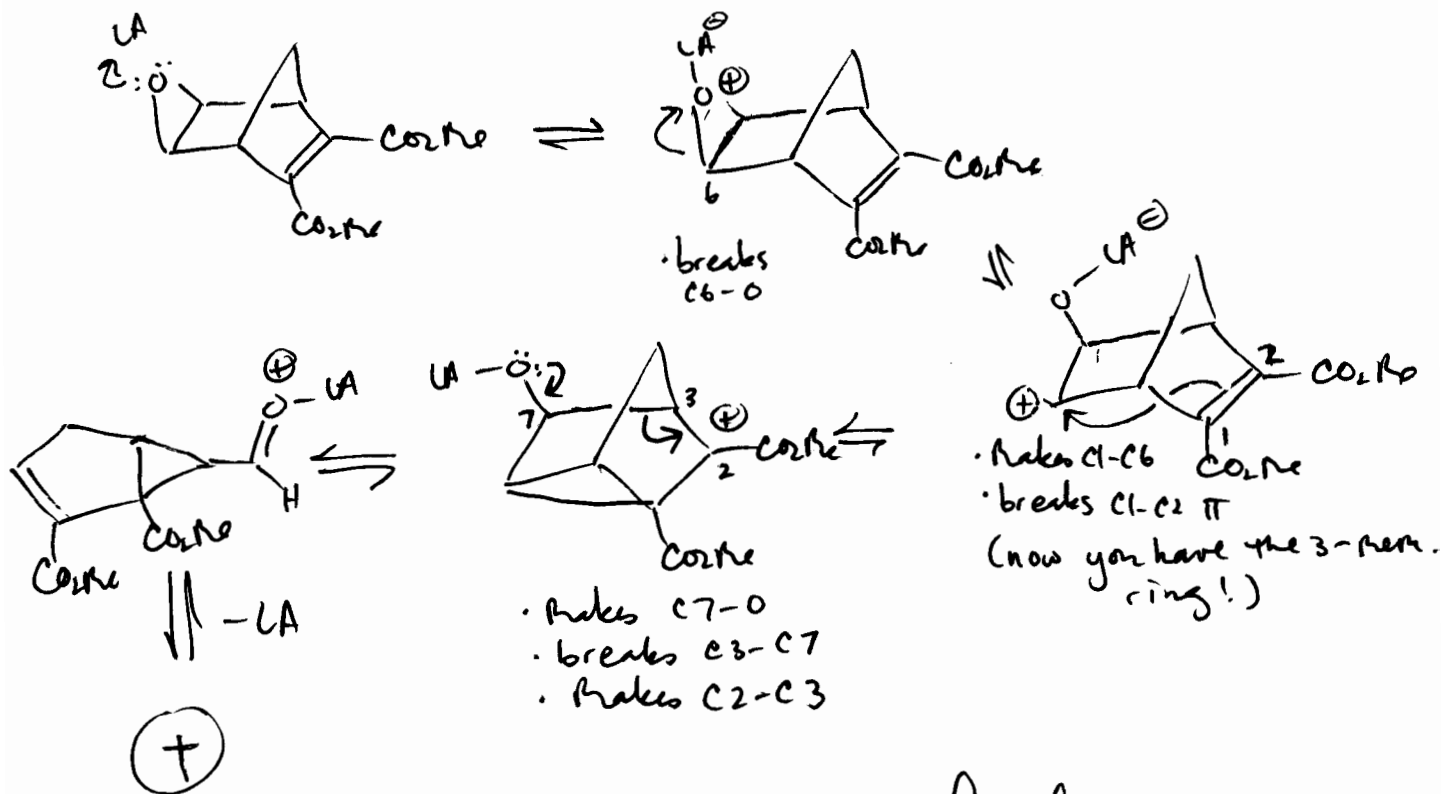 LA
:Ö
CO₂Me
CO₂Me
⇌
LA ⊖
O ⊕
6
CO₂Me
CO₂Me
· breaks
C6-O
⇌
O - LA ⊖
2
CO₂Me
⊕
1
CO₂Me
· Makes C1-C6
· breaks C1-C2 π
(now you have the 3-mem.
ring!)
⇌
LA - Ö:
7
3
⊕
2
CO₂Me
CO₂Me
· Makes C7-O
· breaks C3-C7
· Makes C2-C3
⇌
⊕
O - LA
H
CO₂Me
CO₂Me
⇌ -LA
+